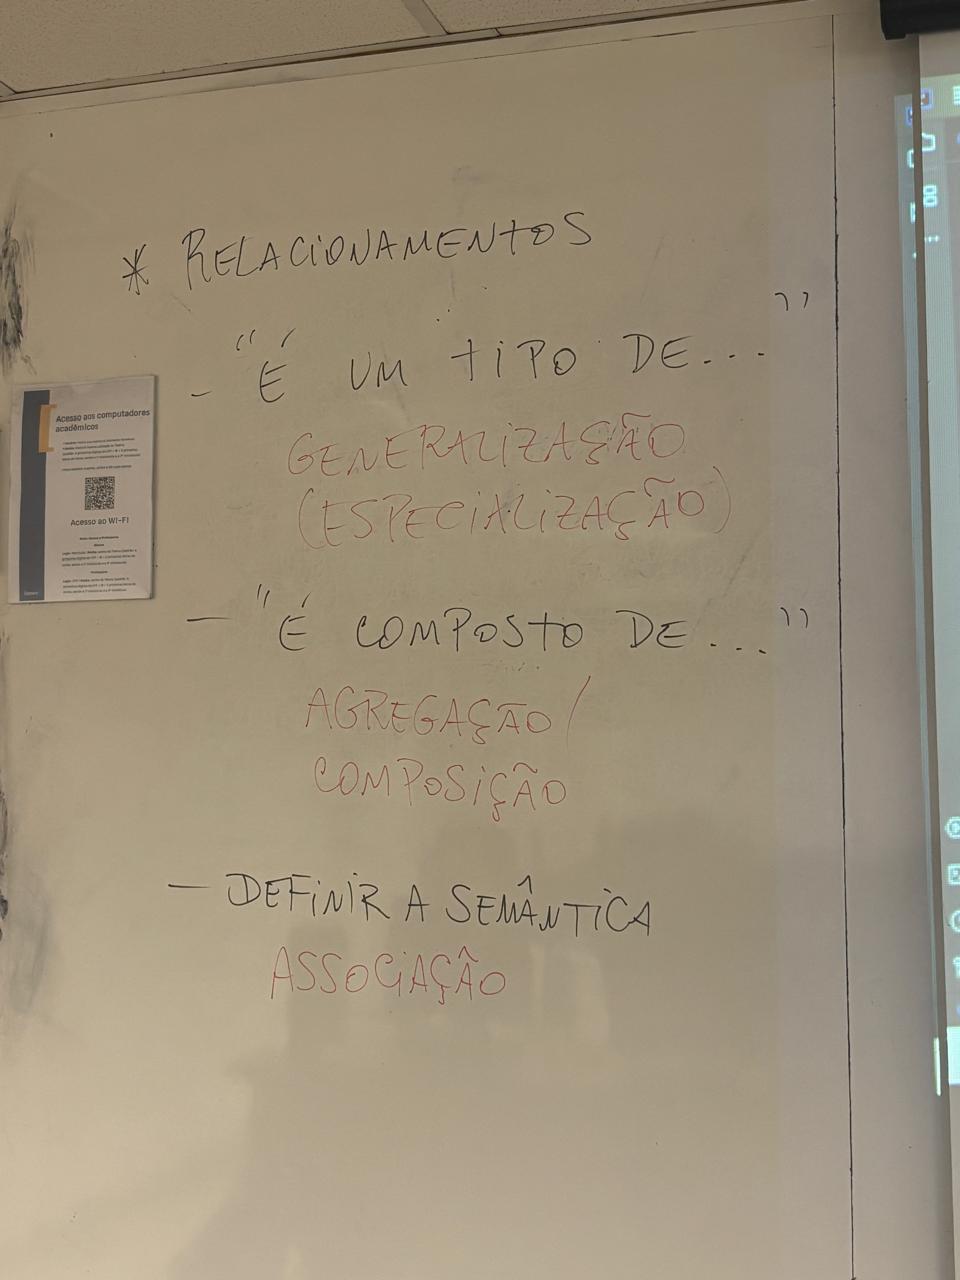 * RELACIONAMENTOS
- "É UM TIPO DE..."
GENERALIZAÇÃO
(ESPECIALIZAÇÃO)
- "É COMPOSTO DE..."
AGREGAÇÃO/
COMPOSIÇÃO
- DEFINIR A SEMÂNTICA
ASSOCIAÇÃO
Acesso aos computadores
acadêmicos
Acesso ao WI-FI